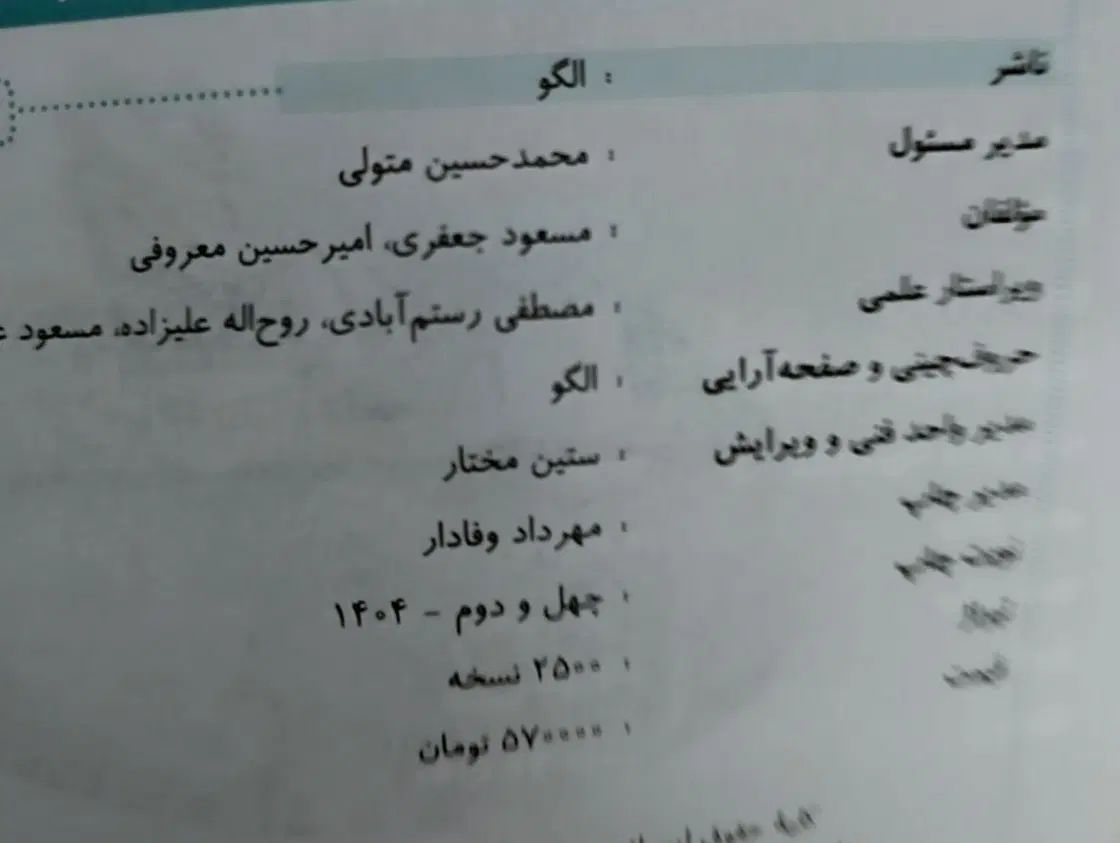 ناشر : الگو
مدیر مسئول : محمدحسین متولی
مؤلفان : مسعود جعفری، امیرحسین معروفی
ویراستار علمی : مصطفی رستم‌آبادی، روح‌اله علیزاده، مسعود
حروف‌چینی و صفحه‌آرایی : الگو
مدیر واحد فنی و ویرایش : ستین مختار
مدیر چاپ : مهرداد وفادار
نوبت چاپ : چهل و دوم - ۱۴۰۴
تیراژ : ۲۵۰۰ نسخه
قیمت : ۵۷۰۰۰۰ تومان